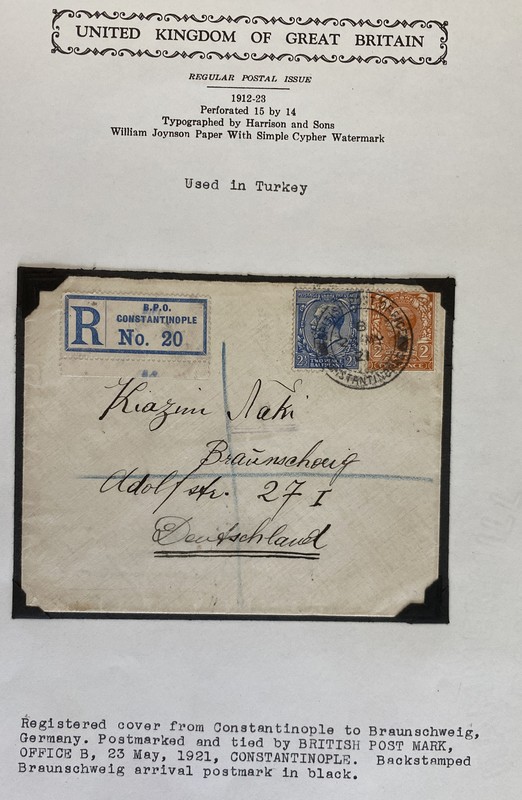 UNITED KINGDOM OF GREAT BRITAIN
REGULAR POSTAL ISSUE
1912-23
Perforated 15 by 14
Typographed by Harrison and Sons
William Joynson Paper With Simple Cypher Watermark
Used in Turkey
R
B.P.O.
CONSTANTINOPLE
No. 20
2½ TWO PENCE HALFPENNY 2½
2 2
CONSTANTINOPLE
21
Kiazim Naki
Braunschweig
Adolfstr. 27 I
Deutschland
Registered cover from Constantinople to Braunschweig,
Germany. Postmarked and tied by BRITISH POST MARK,
OFFICE B, 23 May, 1921, CONSTANTINOPLE. Backstamped
Braunschweig arrival postmark in black.